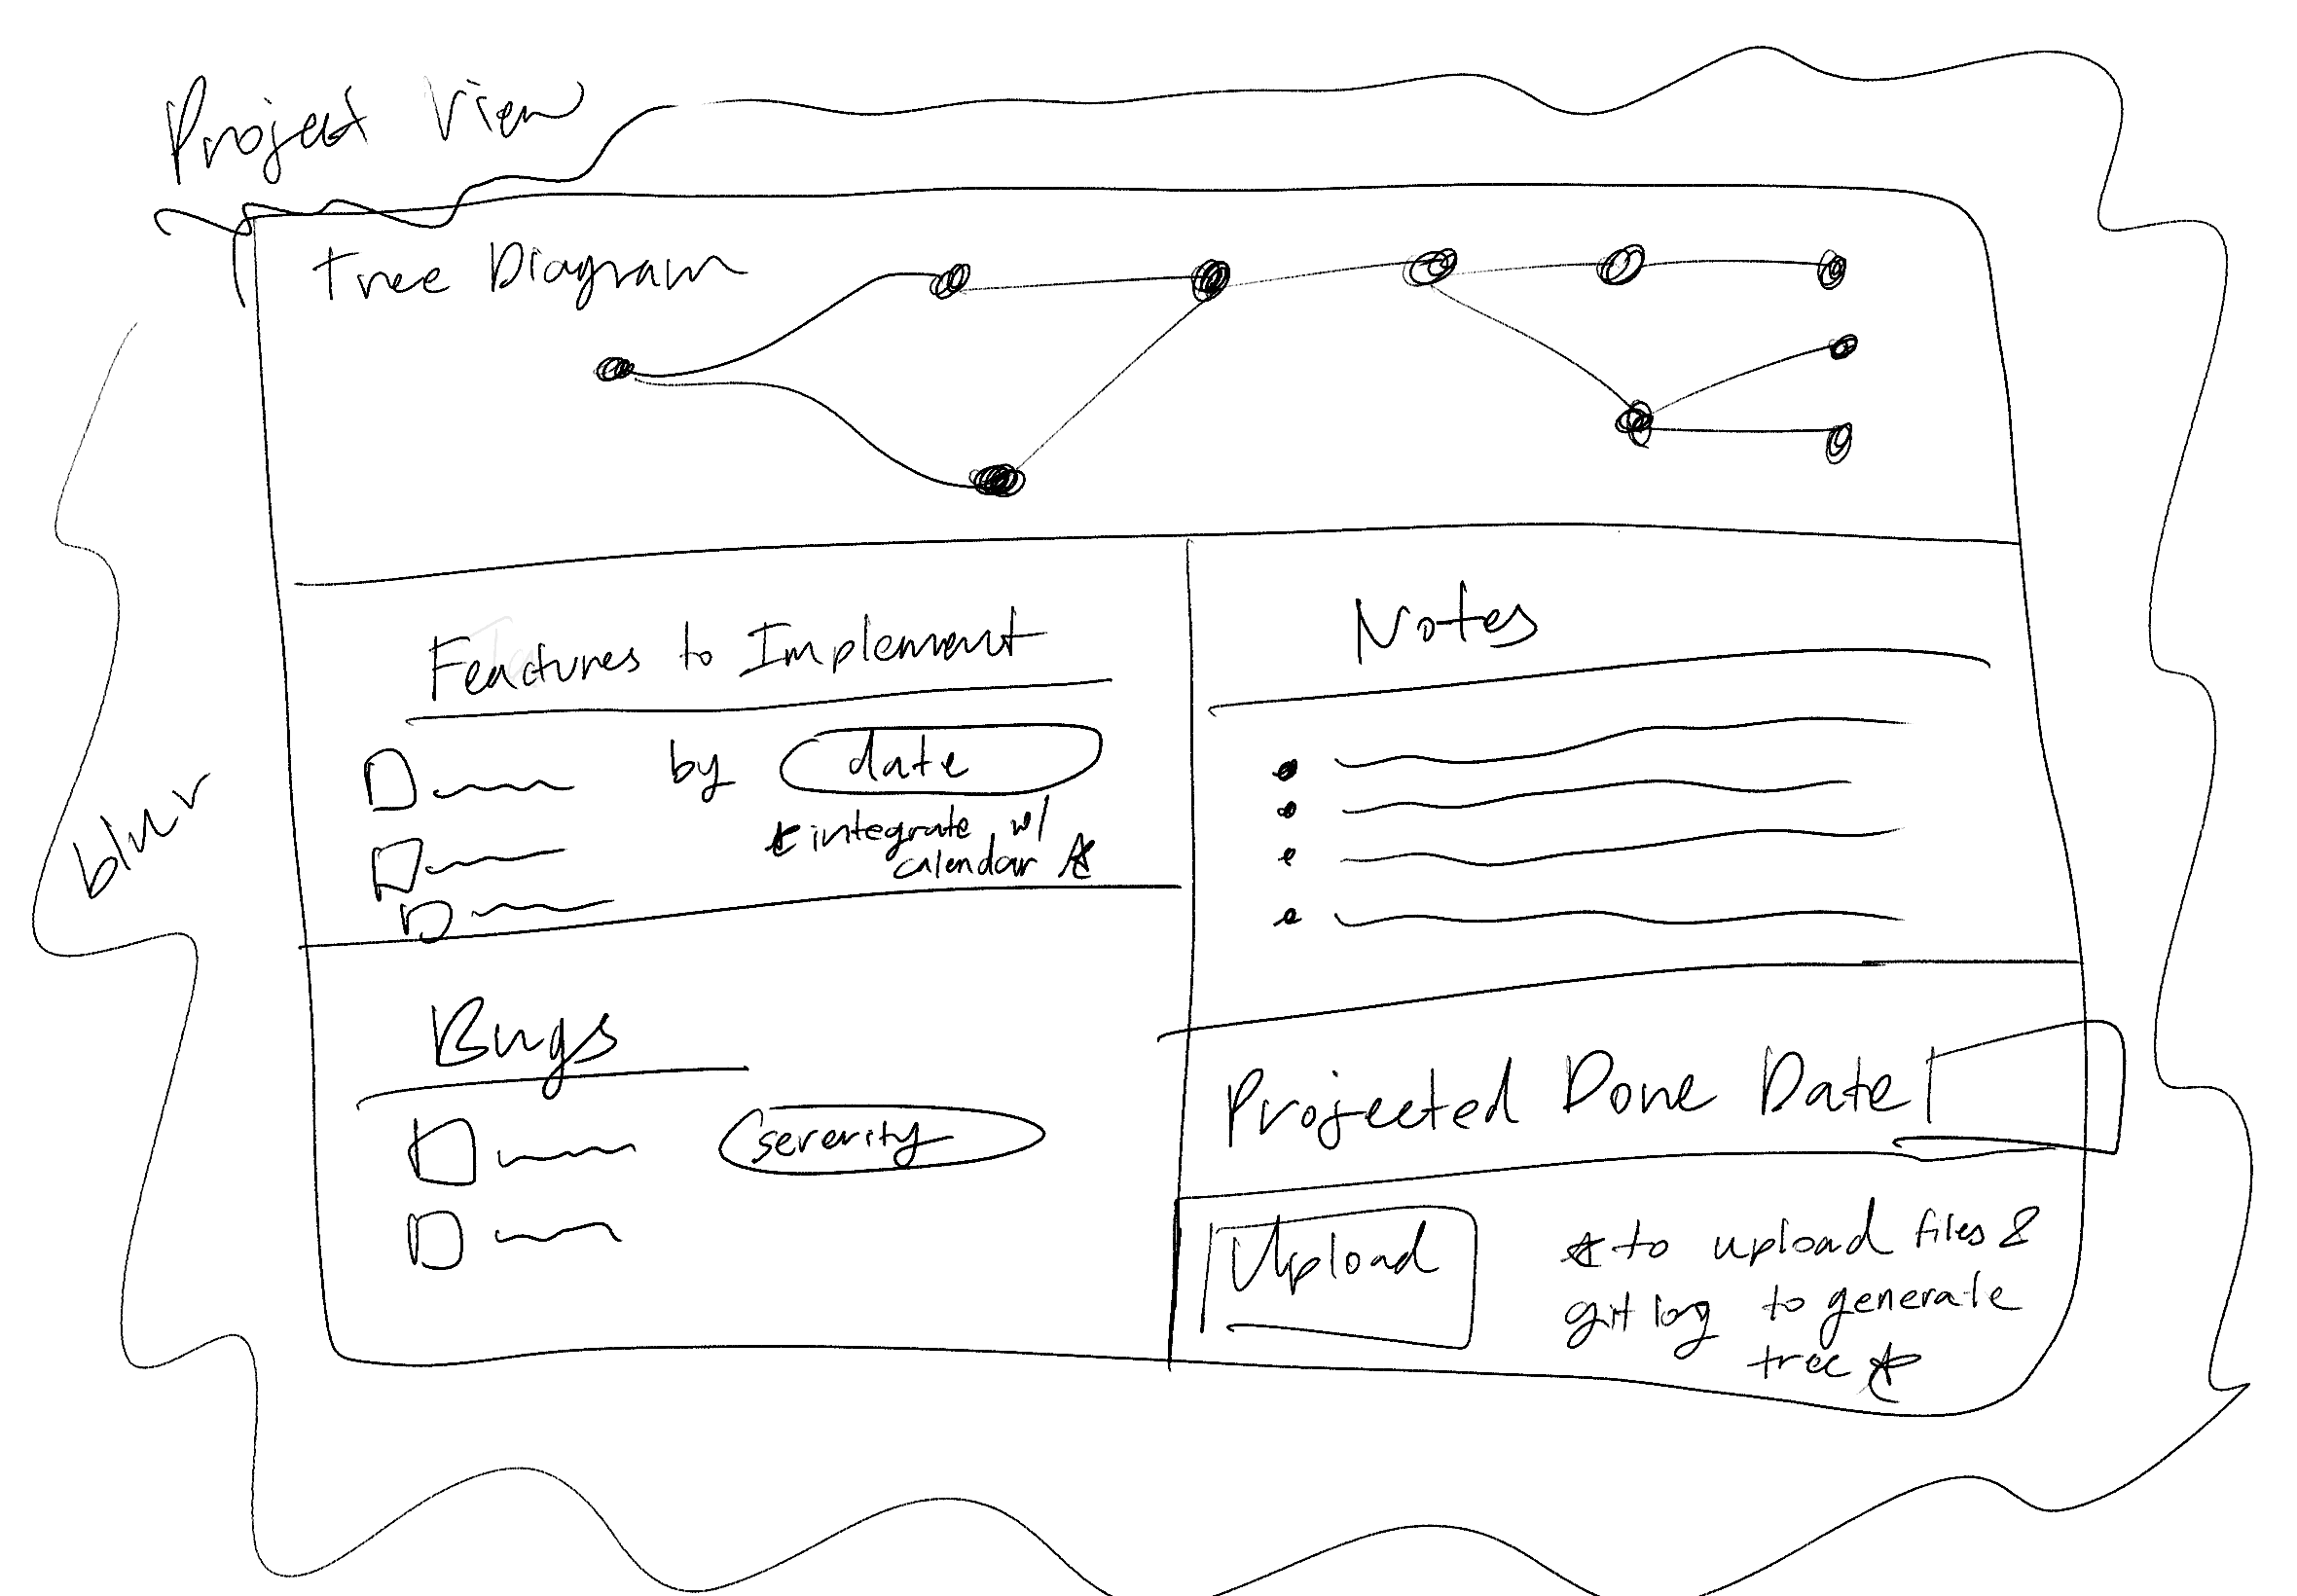 Project View
Tree Diagram
Features to Implement
by date
★ integrate w/
calendar ★
Notes
blur
Bugs
severity
Projected Done Date
Upload
★ to upload files &
git log to generate
tree ★